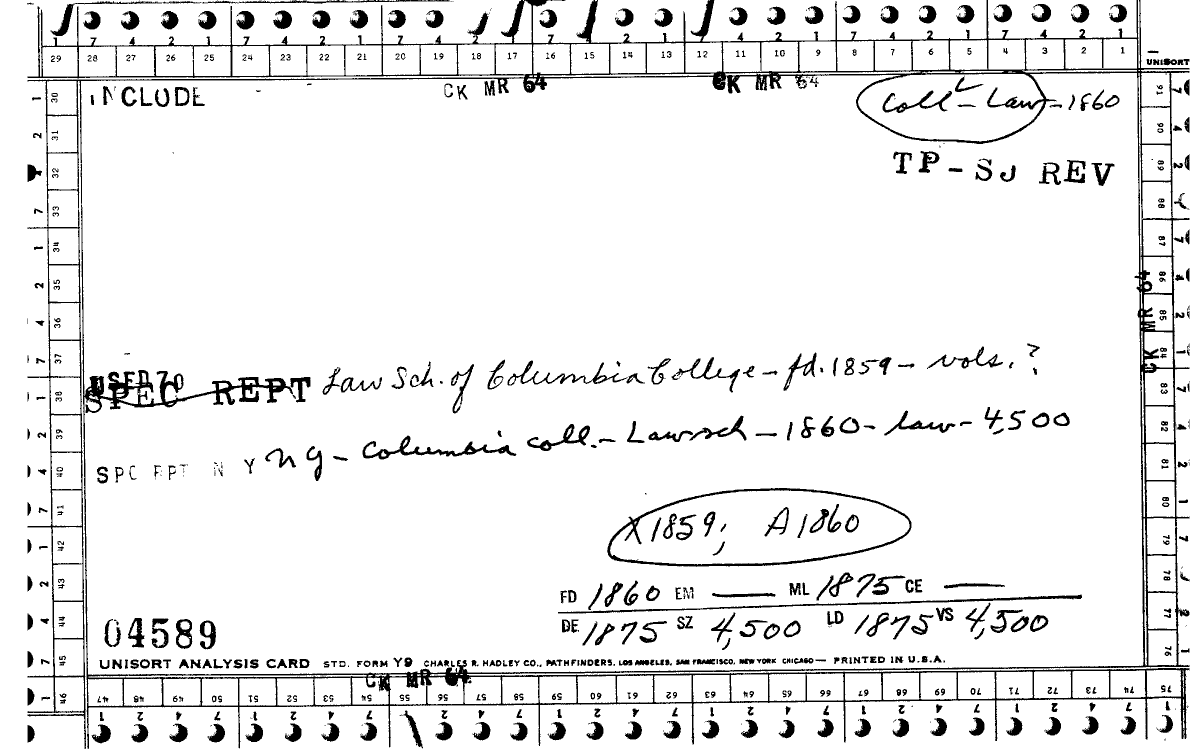 7 4 2 1 7 4 2 1 7
29 28 27 26 25 24 23 22 21 20 19 18 17 16 15 14 13 12 11 10 9 8 7 6 5 4 3 2 1
UNISORT
INCLUDE CK MR 64 CK MR 64 Coll - Law - 1860
TP - SJ REV
CK MR 64
USED 70
SPEC REPT Law Sch. of Columbia College - fd. 1859 - vols. ?
SPC RPT N Y NY - Columbia coll. - Law sch - 1860 - law - 4,500
X1859; A1860
FD 1860 EM — ML 1875 CE —
DE 1875 SZ 4,500 LD 1875 VS 4,500
04589
UNISORT ANALYSIS CARD STD. FORM Y9 CHARLES R. HADLEY CO., PATHFINDERS, LOS ANGELES, SAN FRANCISCO, NEW YORK CHICAGO — PRINTED IN U.S.A.
CK MR 64
30 31 32 33 34 35 36 37 38 39 40 41 42 43 44 45 46
47 48 49 50 51 52 53 54 55 56 57 58 59 60 61 62 63 64 65 66 67 68 69 70 71 72 73 74 75
76 77 78 79 80 81 82 83 84 85 86 87 88 89 90 91